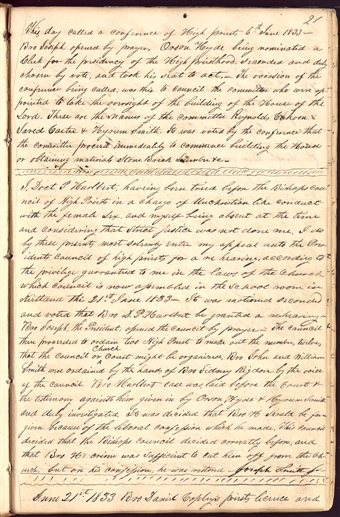 21
This day called a conference of High priest 6th June 1833—
Bro Joseph opened by prayer, Orson Hyde being nominated a
Clerk for the presidency of the High priesthood. Seconded and duly
chosen by vote, and took his seat to act,— The occasion of the
conference being called, was this to council the committee who were ap-
pointed to take the oversight of the building of the House of the
Lord. These are the names of the committee Reynolds Cahoon
Jared Carter & Hyrum Smith. It was voted by the conference that
the committee procure immediately to commence building the House
or obtaining materials Stone Brick Lumber &c—
I, Doct P Hurlbert, having been tried before the Bishops coun
cil of High Priests on a charge of unchristian like conduct
with the female sex, and myself being absent at the time
and considering that strict justice was not done me, I do
by these presents most solemnly enter my appeal unto the Pre
sidents Council of high priests for a re hearing, according to
the privilege guaranteed to me in the laws of the Church
which council is now assembled in the School room in
Kirtland the 21st June 1833— It was motioned seconded
and voted that Bro D. P Hurlbert be granted a rehearing
Bro Joseph, the President, opened the council by prayer— The council
then proceeded to ordain two High Priest to make out the number, twelve,
that the Council or Church Court might be organized, Bro John and William
Smith was ordained by the hands of Bro Sidney Rigdon by the voice
of the council Bro Hurlbert case was laid before the Court &
the testimony against him given in by Orson Hyde & Hyrum Smith
and duly investigated. It was decided that Bro H should be for
given because of the liberal confession which he made, This council
decided that the Bishops Council decided correctly before, and
that Bro H's crime was sufficient to cut him off from the Ch-
urch, but on his confession, he was restored Joseph Smith Jr
June 21st 1833 Bro David Copley's priests licence and